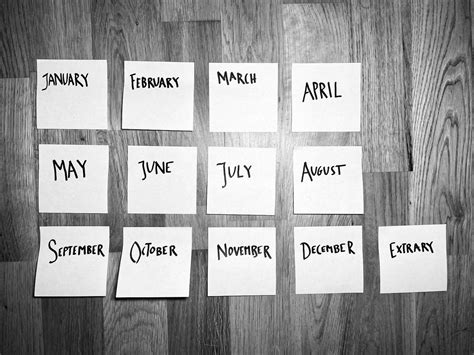 January February March April
May June July August
September October November December Extrary